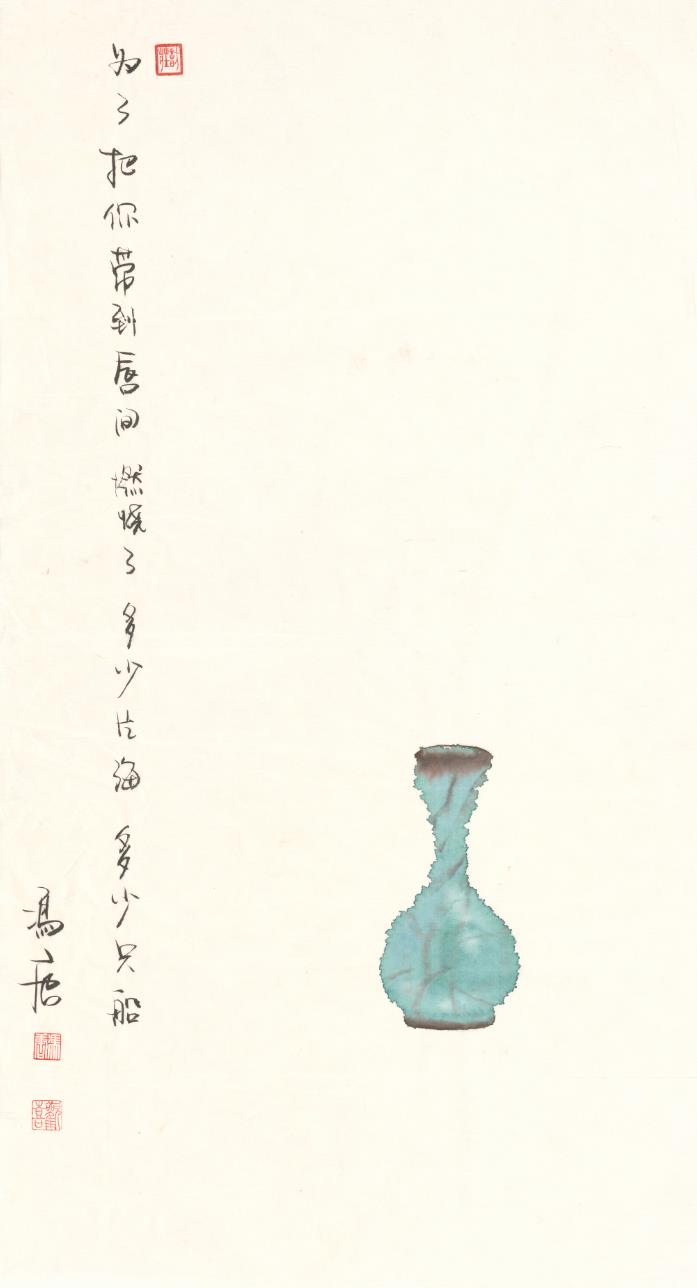 为了把你带到唇间 燃烧了 多少片海 多少只船
冯唐